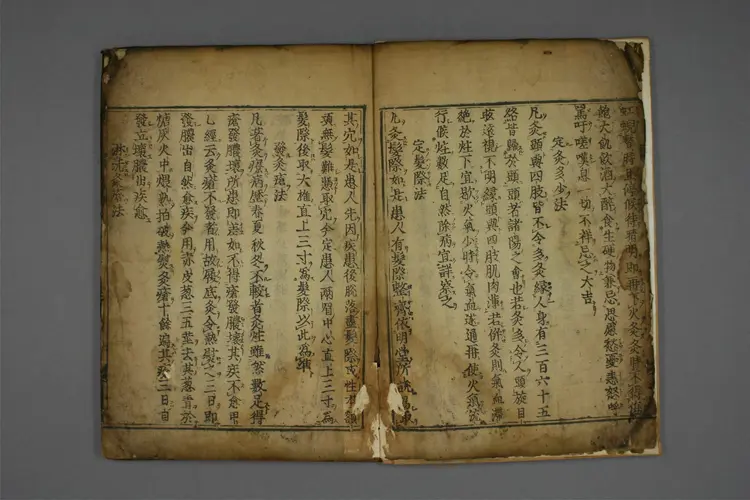 飽大飢飲酒大醉食生硬物兼忌思慮愁憂恚怒呼
罵吁嗟嘆息一切不祥忌之大吉
定灸多少法
凡灸頭與四肢皆不令多灸緣人身有三百六十五
絡皆歸於頭頭者諸陽之會也若灸多令人頭旋目
眩遠視不明緣頭與四肢肌肉薄若併灸則氣血滯
絶於炷下宜歇火氣少時令氣血遂通再使火氣
行候炷數足自然除病宜詳察之
定髮際法
凡灸髮際如是患人有髮際整齊依明堂所
其穴如是患人先因疾患後脫落盡髮際或性本額
頭無髮難憑取穴今定患人兩眉中心直上三寸為
髮際後取大椎直上三寸為髮際以此為準
發灸瘡法
凡著灸療病歷春夏秋冬不較者灸炷雖然數足得
瘡發膿壞所患即差如不得瘡發膿壞其疾不愈甲
乙經云灸瘡不發者用故履底灸令熱熨之三日即
發膿出自然愈疾今用赤皮葱三五莖去其葱青於
煻灰火中煨熟拍破熱熨灸瘡十餘遍其瘡三日自
發立壞膿出疾愈
灸瘡法